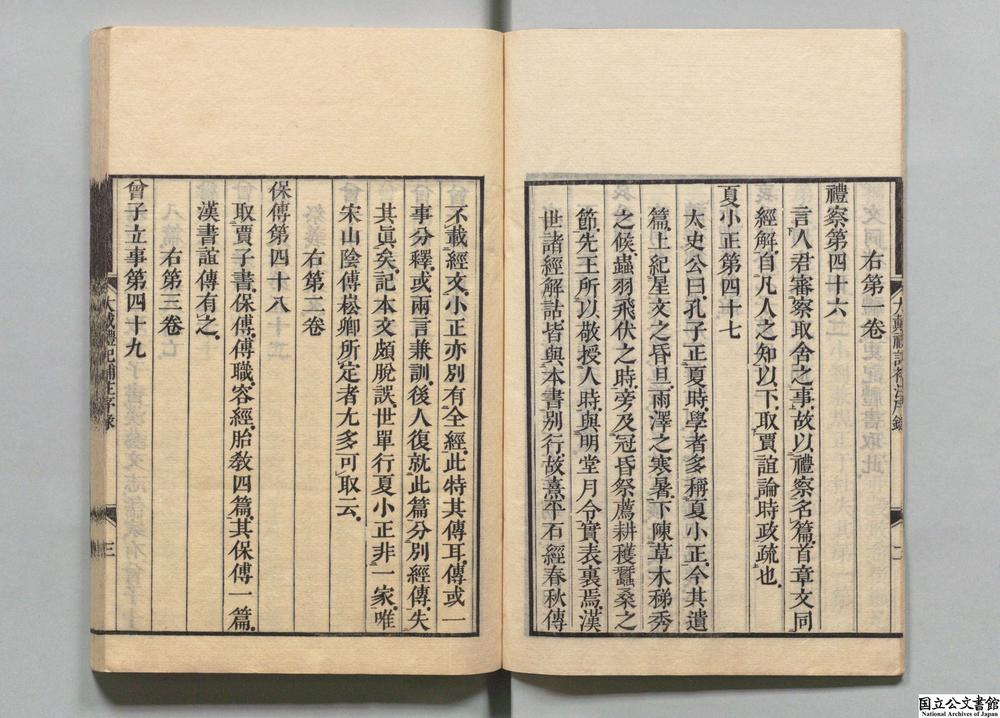 右第一卷
禮察第四十六
言人君審察取舍之事故以禮察名篇首章文同
經解自凡人之知以下取賈誼論時政疏也
夏小正第四十七
太史公曰孔子正夏時學者多稱夏小正今其遺
篇上紀星文之昏旦雨澤之寒暑下陳草木稊秀
之候蟲羽飛伏之時旁及冠昏祭薦耕穫蠶桑之
節先王所以敬授人時與明堂月令實表裏焉漢
世諸經解詁皆與本書別行故熹平石經春秋傳
不載經文小正亦別有全經此特其傳耳傳或一
事分釋或兩言兼訓後人復就此篇分別經傳失
其眞矣記本文頗脫誤世單行夏小正非一家唯
宋山陰傅崧卿所定者尢多可取云
右第二卷
保傅第四十八
取賈子書保傅傅職容經胎敎四篇其保傅一篇
漢書誼傳有之
右第三卷
曾子立事第四十九
大戴禮記補注序錄
三
国立公文書館
National Archives of Japan